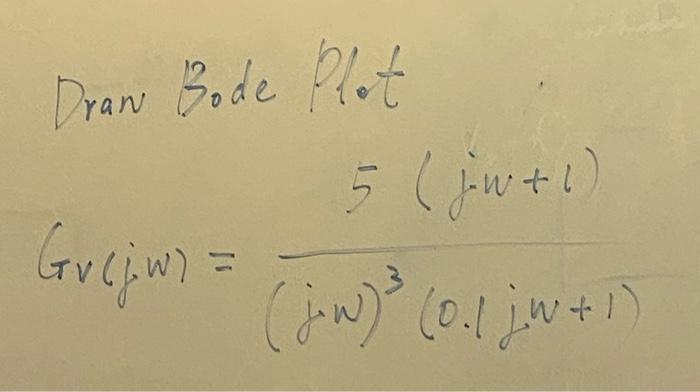 Draw Bode Plot
5 (jw+1)
Gv(jw) =
(jw)³ (0.1jw+1)